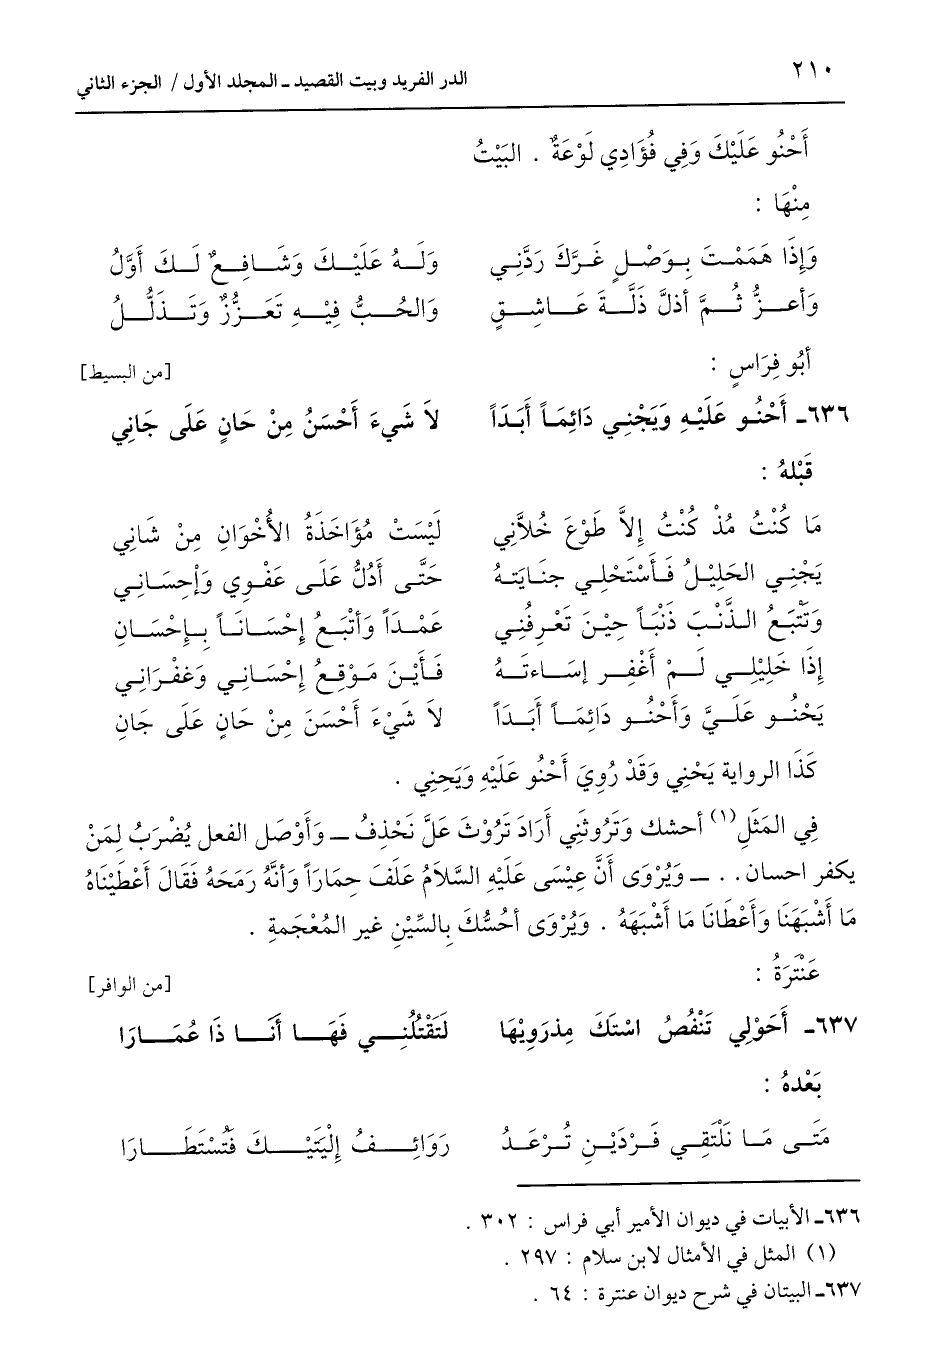 ٢١٠ الدر الفريد وبيت القصيد ـ المجلد الأول / الجزء الثاني
أَحْنُو عَلَيْكَ وَفِي فُؤَادِي لَوْعَةٌ . البَيْتُ
مِنْهَا :
وَإِذَا هَمَمْتَ بِوَصْلِ غَرَّكَ رَدَّنِي وَلَهُ عَلَيْكَ وَشَافِعٌ لَكَ أَوَّلُ
وَأَعزُّ ثُمَّ أذلَّ ذَلَّةَ عَاشِقٍ وَالحُبُّ فِيْهِ تَعَزُّزٌ وَتَذَلُّلُ
أَبُو فِرَاسٍ : [من البسيط]
٦٣٦ـ أَحْنُو عَلَيْهِ وَيَجْنِي دَائِمَاً أَبَدَاً لاَ شَيءَ أَحْسَنُ مِنْ حَانٍ عَلَى جَانِي
قَبْلهُ :
مَا كُنْتُ مُذْ كُنْتُ إِلاَّ طَوْعَ خُلاَّنِي لَيْسَتْ مُؤَاخَذَةُ الأُخْوَانِ مِنْ شَانِي
يَجْنِي الخَلِيْلُ فَأَسْتَحْلِي جِنَايَتهُ حَتَّى أَدُلُّ عَلَى عَفْوِي وَإحِسَانِي
وَتَتْبَعُ الذَّنْبَ ذَنْبَاً حِيْنَ تَعْرِفُنِي عَمْدَاً وَأتْبَعُ إحْسَانَاً بِإِحْسَانِ
إذَا خَلِيْلِي لَمْ أَغْفِر إسَاءتَهُ فَأَيْنَ مَوْقِعُ إحْسَانِي وَغفْرَانِي
يَحْنُو عَلَيَّ وَأَحْنُو دَائِمَاً أَبَدَاً لاَ شَيْءَ أَحْسَنَ مِنْ حَانٍ عَلَى جَانِ
كَذَا الرواية يَحْنِي وَقَدْ رُوِيَ أَحْنُو عَلَيْهِ وَيَحِنِي .
فِي المَثَلِ(١) أحشك وَتَرُوثُنِي أَرَادَ تَرُوْثَ عَلَيَّ نَحْذِفُ ـ وَأَوْصَل الفعل يُضْرَبُ لِمَنْ
يكفر احسان . . ـ وَيُرْوَى أَنَّ عِيْسَى عَلَيْهِ السَّلامُ عَلَفَ حِمَارَاً وَأنَّهُ رَمَحَهُ فَقَالَ أَعْطَيْنَاهُ
مَا أَشْبَهَنَا وَأَعْطَانَا مَا أَشْبَهَهُ . وَيُرْوَى أحُسُّكَ بِالسِّيْنِ غير المُعْجَمةِ .
عَنْتَرَةُ : [من الوافر]
٦٣٧ـ أَحَوْلِي تَنْفُضُ اسْتَكَ مِذرَوِيْهَا لَتَقْتُلُنِي فَهَا أَنَا ذَا عُمَارَا
بَعْدهُ :
مَتَى مَا نَلْتَقِي فَرْدَيْنِ تُرْعَدُ رَوَائِفُ إِلْيَتَيْكَ فَتُسْتَطَارَا
٦٣٦ـ الأبيات في ديوان الأمير أبي فراس : ٣٠٢ .
(١) المثل في الأمثال لابن سلام : ٢٩٧ .
٦٣٧ـ البيتان في شرح ديوان عنترة : ٦٤ .